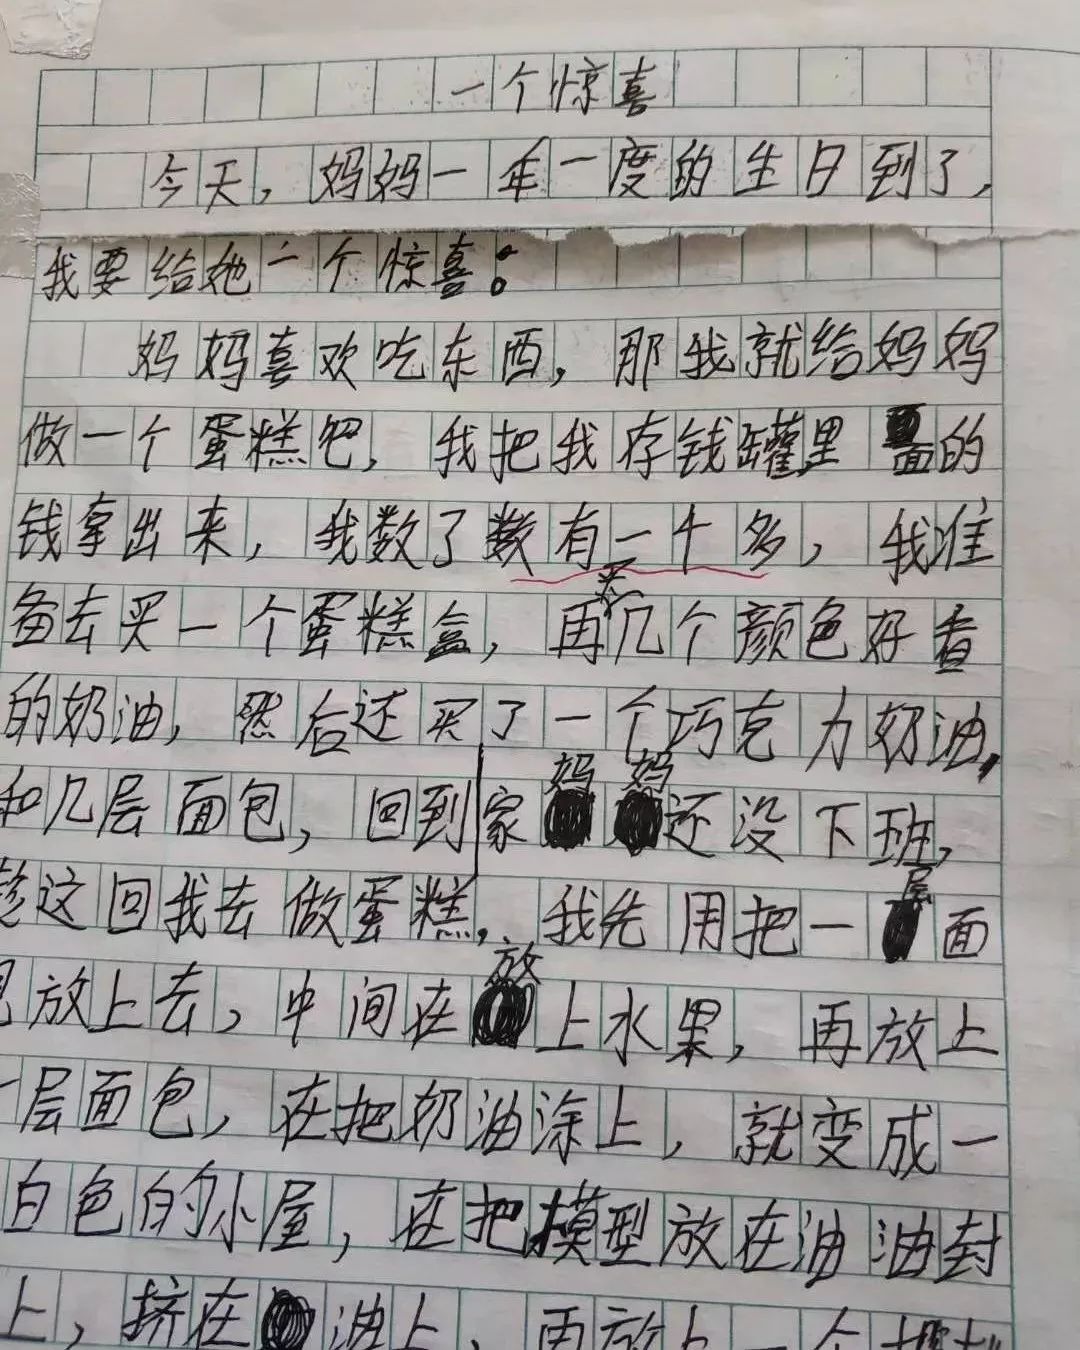 一个惊喜
今天，妈妈一年一度的生日到了，
我要给她一个惊喜。
妈妈喜欢吃东西，那我就给妈妈
做一个蛋糕吧，我把我存钱罐里面的
钱拿出来，我数了数有一千多，我准
备去买一个蛋糕盒，再买几个颜色好看
的奶油，然后还买了一个巧克力奶油，
和几层面包，回到家妈妈还没下班，
趁这回我去做蛋糕，我先用把一层面
放上去，中间在放上水果，再放上
一层面包，在把奶油涂上，就变成一
白色的小屋，在把模型放在油油封
上，挤在油上，再放上一个